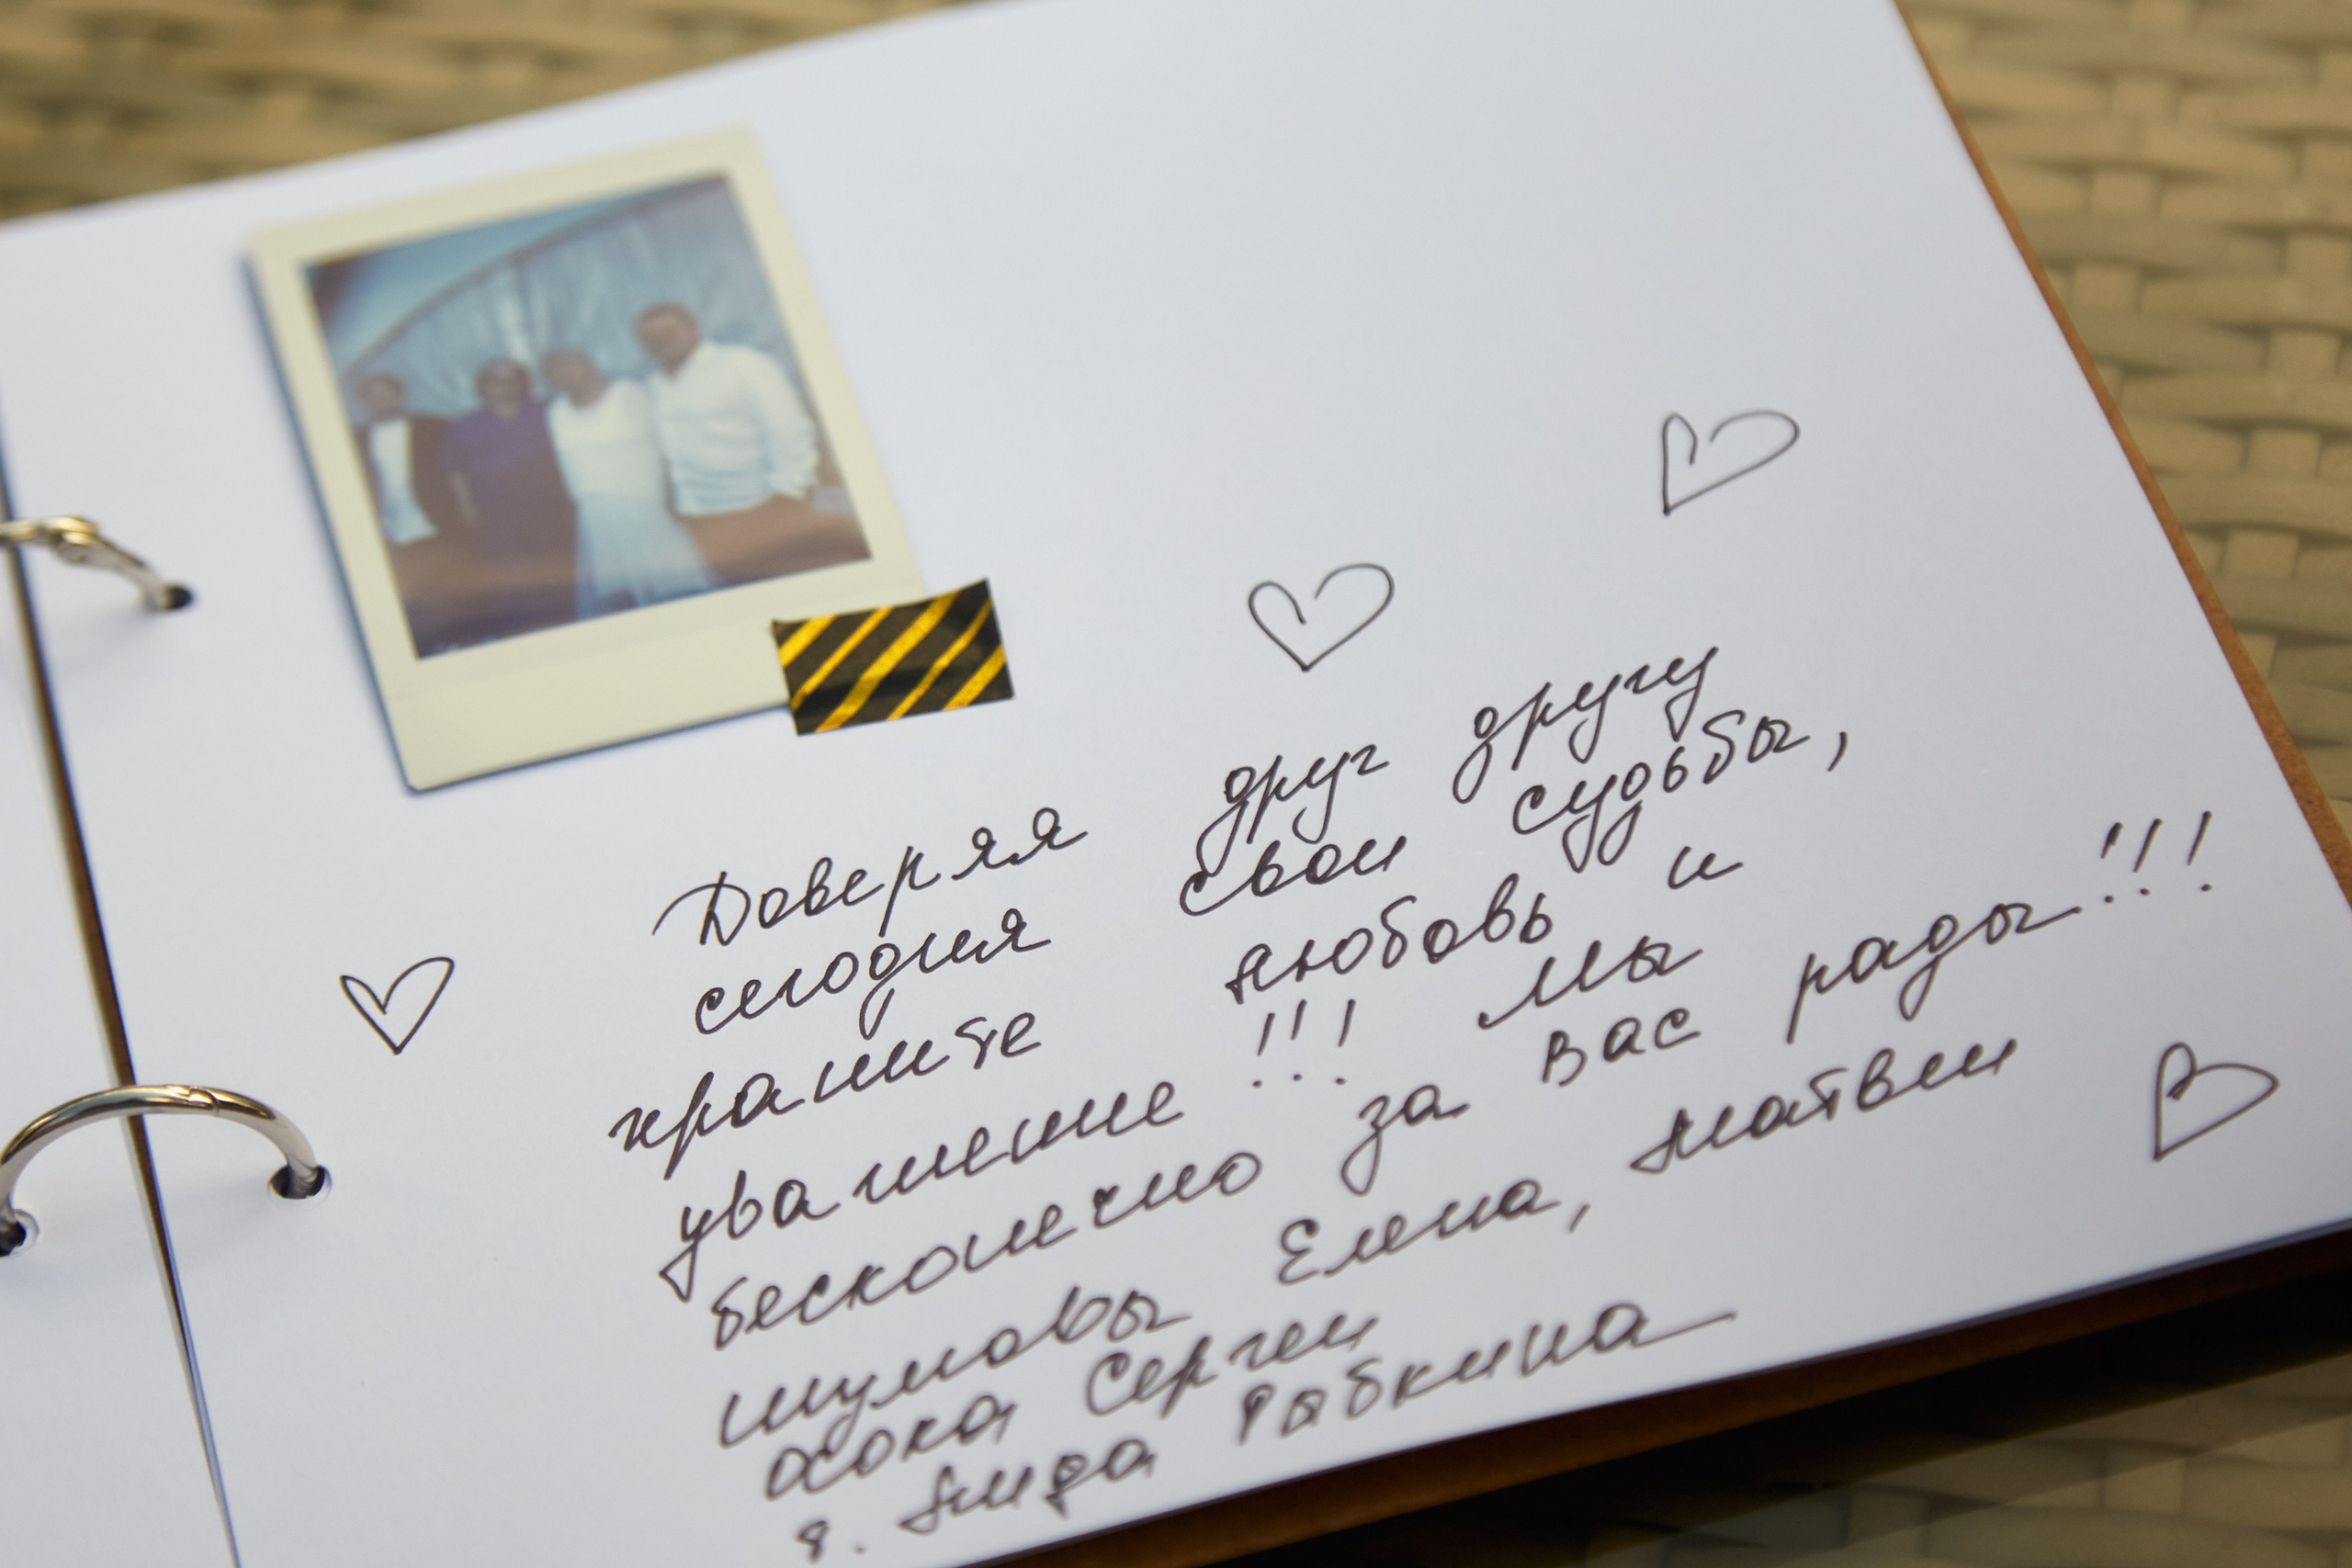 Доверяя друг другу
сегодня свои судьбы,
храните любовь и
уважение !!! Мы
бесконечно за вас рады!!!
Шумовы Елена, Матвей
Сергей
Лида Рябкина